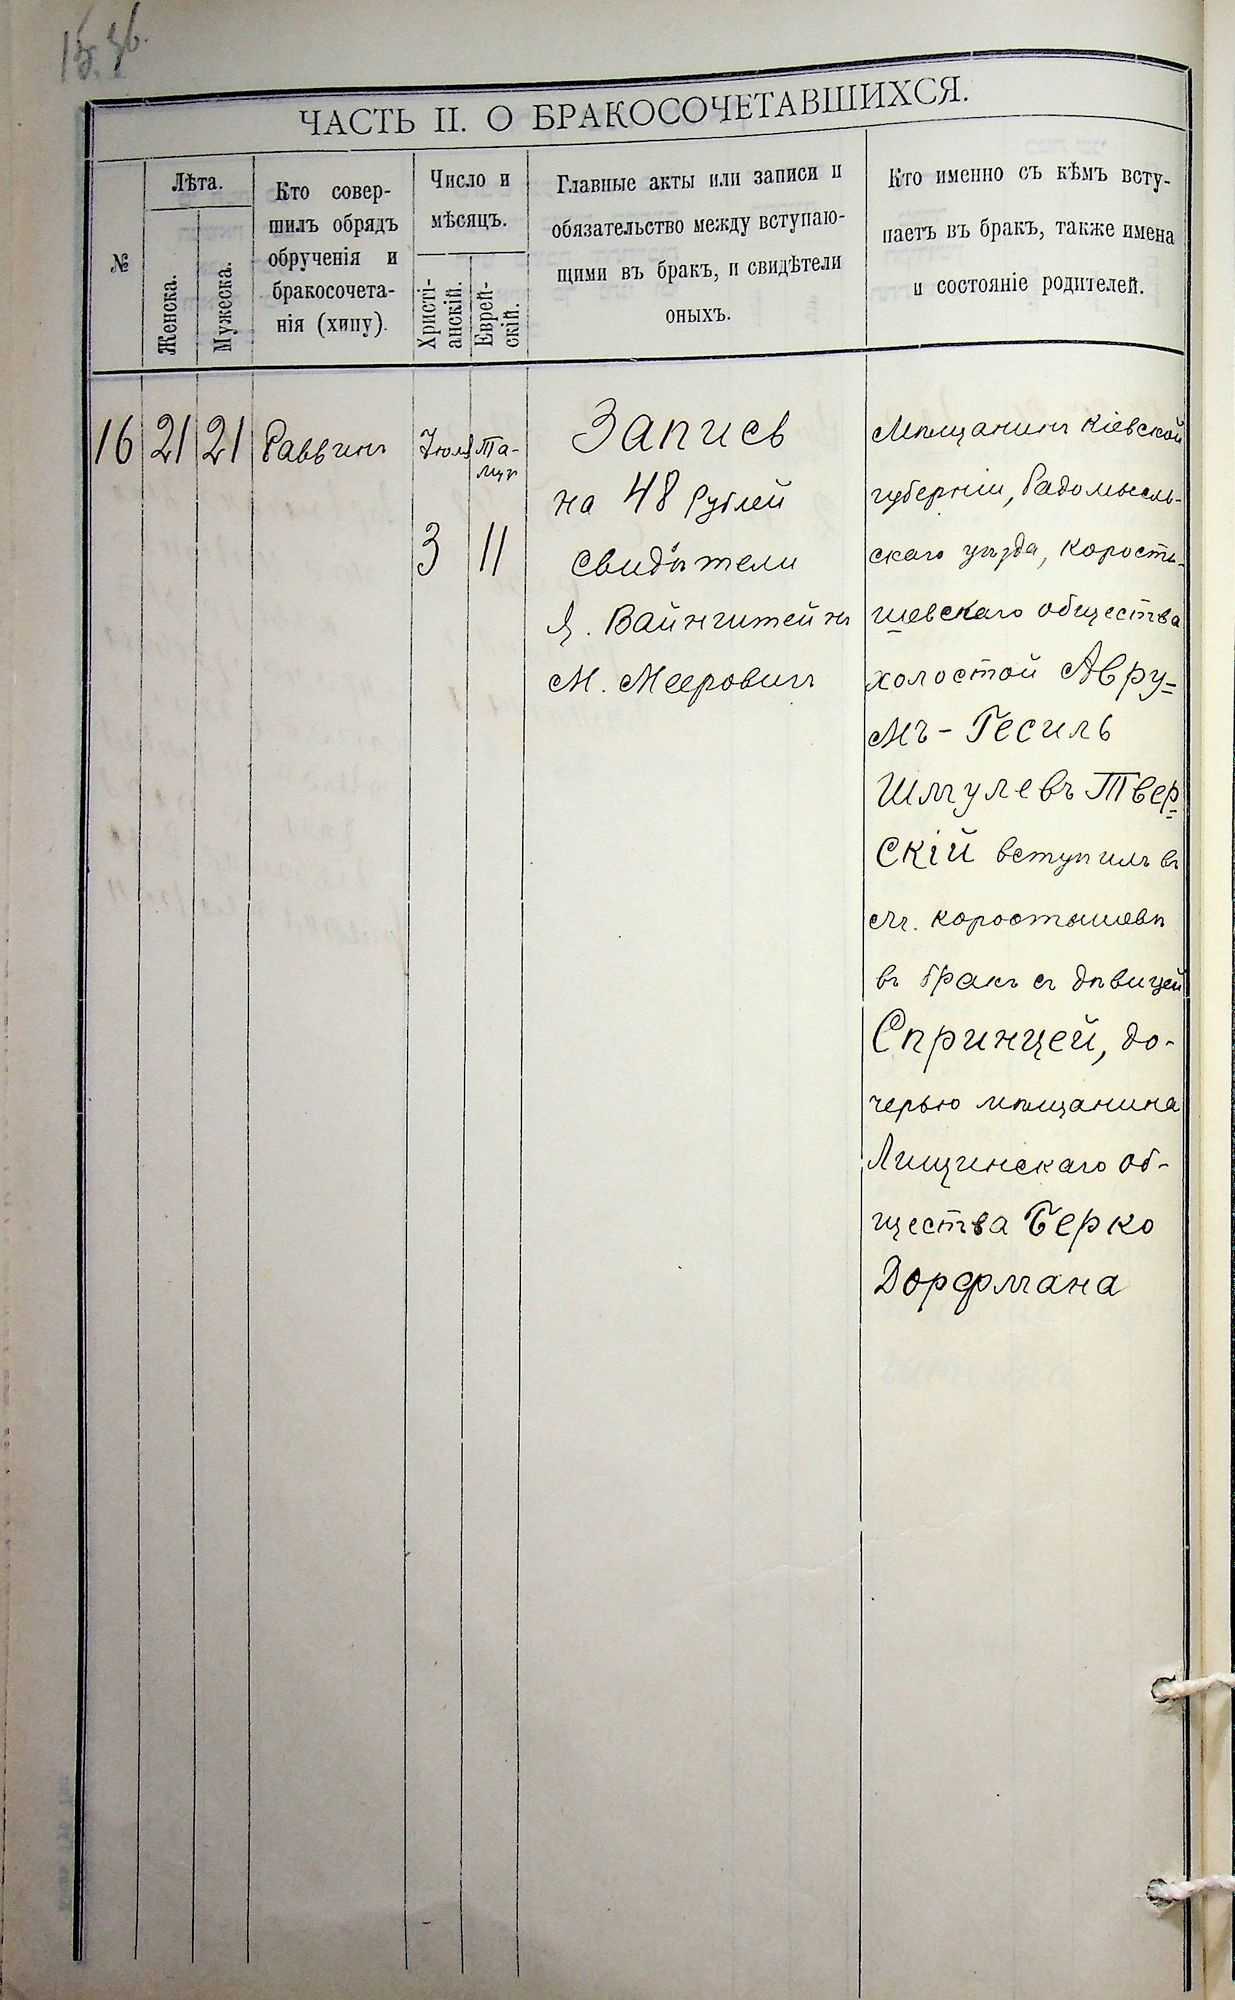 ЧАСТЬ II. О БРАКОСОЧЕТАВШИХСЯ.
№
Лѣта.
Женска.
Мужеска.
Кто совер-
шилъ обрядъ
обрученія и
бракосочета-
нія (хипу).
Число и
мѣсяцъ.
Христі-
анскій.
Еврей-
скій.
Главные акты или записи и
обязательство между вступаю-
щими въ бракъ, и свидѣтели
оныхъ.
Кто именно съ кѣмъ всту-
паетъ въ бракъ, также имена
и состояніе родителей.
16
21
21
Раввинъ
Іюля
3
Та-
муз
11
Запись
на 48 рублей
свидѣтели
Я. Вайнштейнъ
М. Мееровичъ
Мѣщанинъ Кіевской
губерніи, Радомысль-
скаго уѣзда, Корости-
шевскаго общества
холостой Авру-
мъ-Гесиль
Шмулевъ Твер-
скій вступилъ въ
м. Коростышевѣ
въ бракъ съ дѣвицей
Спринцей, до-
черью мѣщанина
Лищинскаго об-
щества Берко
Дорфмана